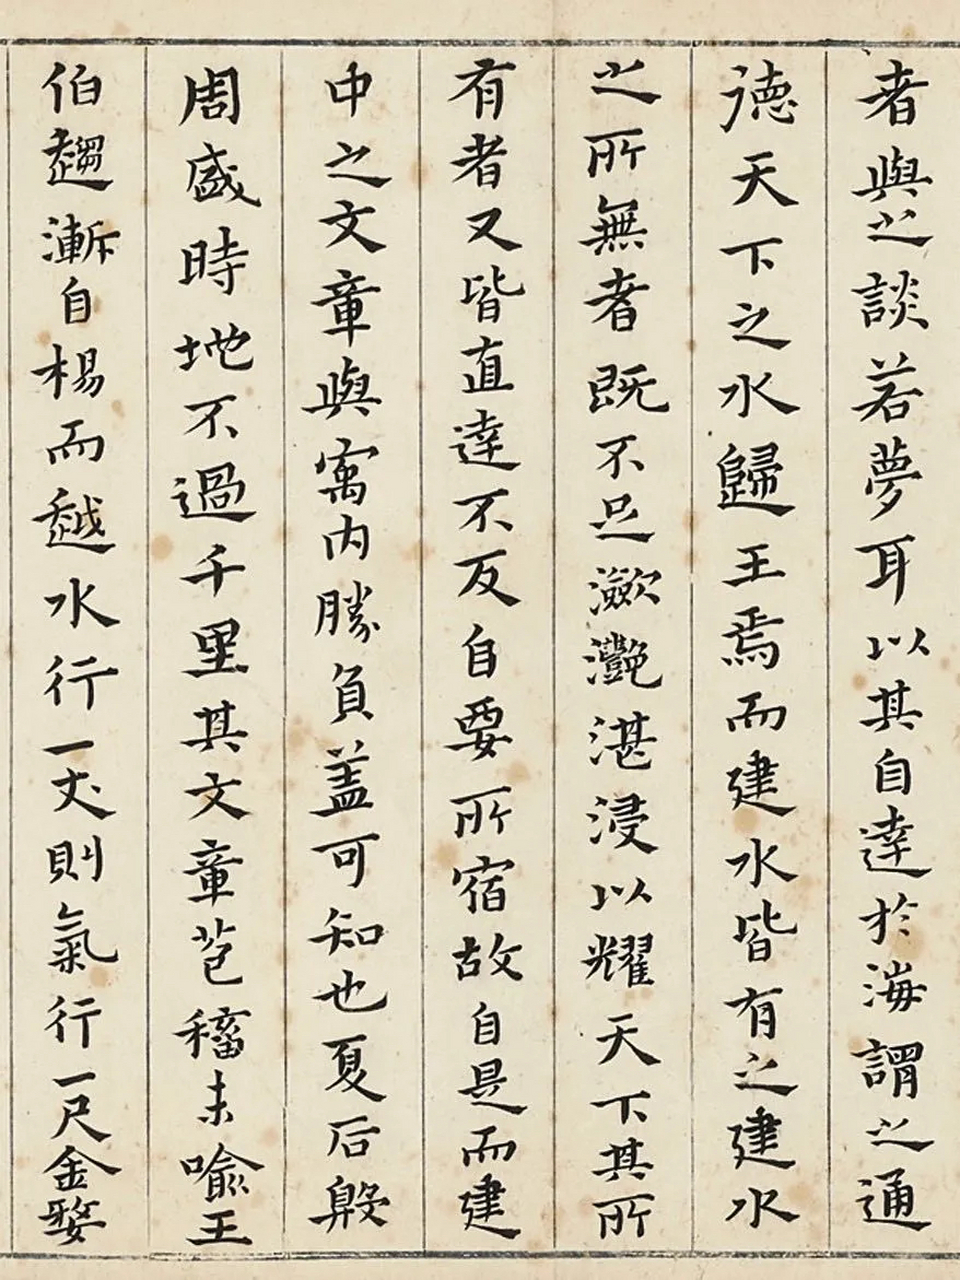 者與之談若夢耳以其自達於海謂之通
德天下之水歸王焉而建水皆有之建水
之所無者既不足瀲灩湛浸以耀天下其所
有者又皆直達不反自要所宿故自是而建
中之文章與寓内勝負蓋可知也夏后殷
周盛時地不過千里其文章苞稸未喻王
伯趨漸自楊而越水行一丈則氣行一尺金婺